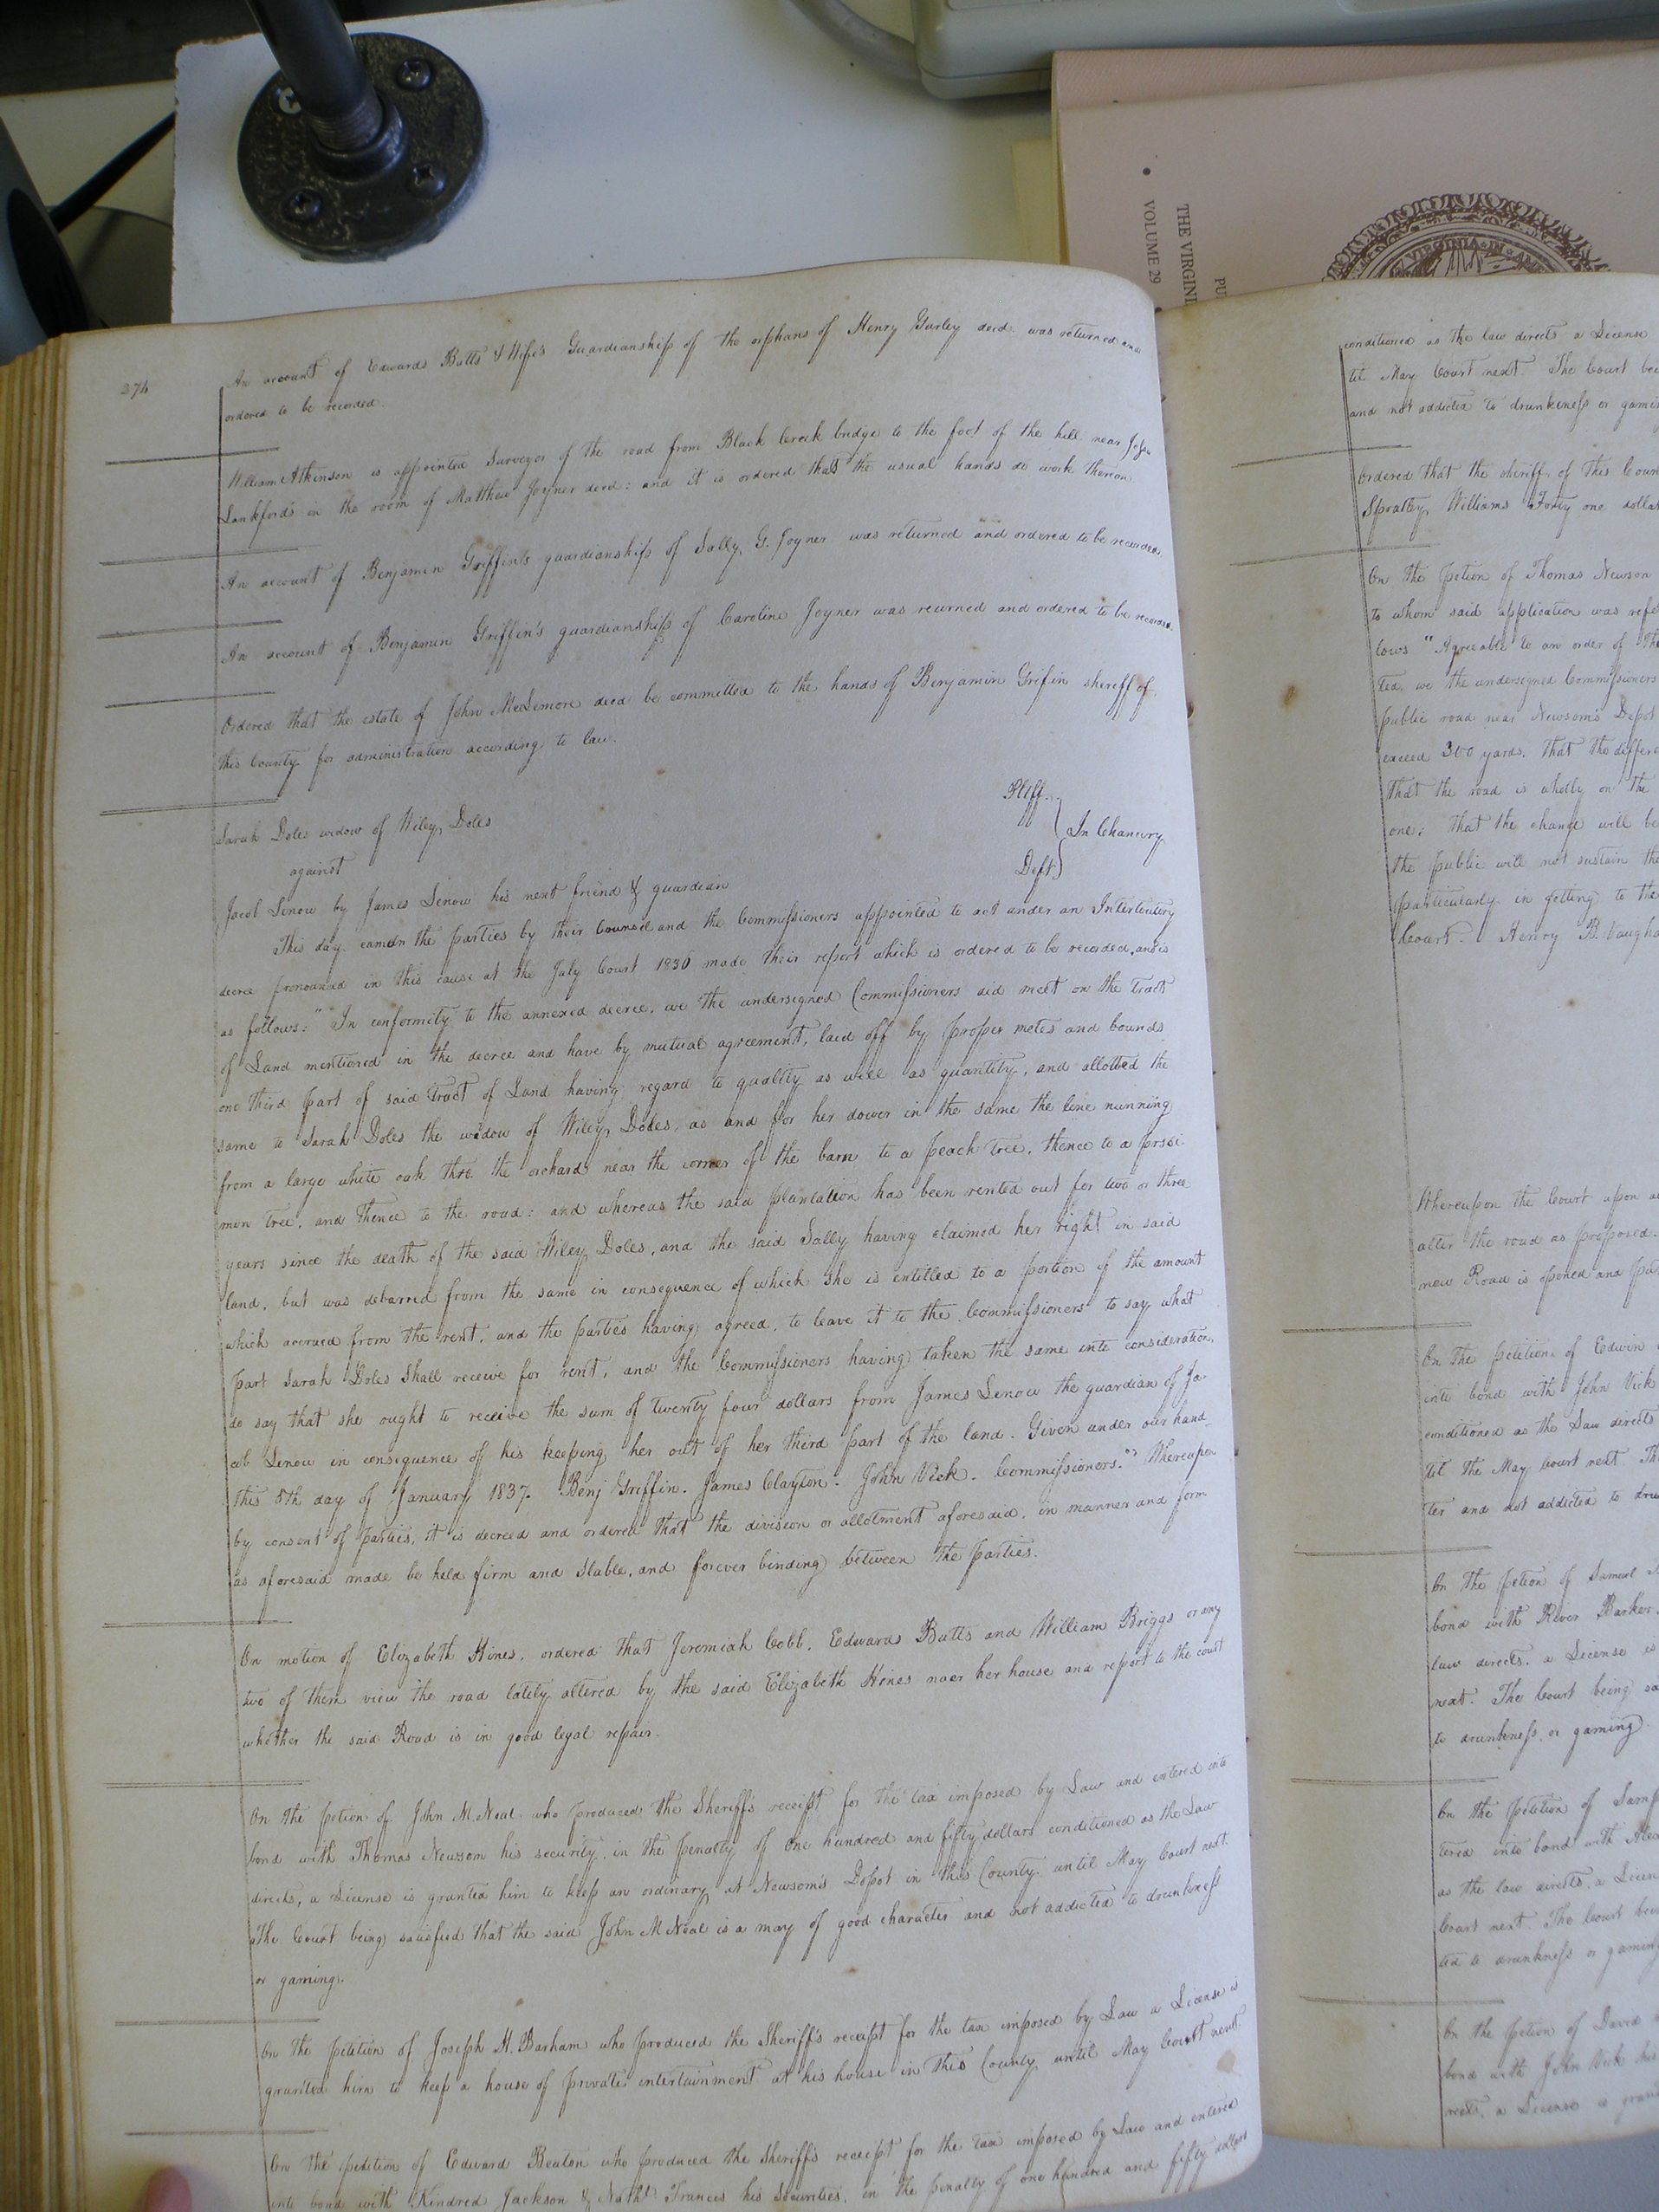 THE VIRGINI
VOLUME 29
PU
VIRGINIA IN
274
An account of Edwards Butts & Wife's Guardianship of the orphans of Henry Gurley decd. was returned and
ordered to be recorded.
William Atkinson is appointed Surveyor of the road from Black Creek bridge to the foot of the hill near
Lankford's in the room of Matthew Joyner decd: and it is ordered that the usual hands do work thereon.
An account of Benjamin Griffin's guardianship of Sally G. Joyner was returned and ordered to be recorded.
An account of Benjamin Griffin's guardianship of Caroline Joyner was reurned and ordered to be recorded.
Ordered that the estate of John McLemore decd be committed to the hands of Benjamin Grifin sheriff of
this County for administration according to law.
Sarah Doles widow of Wiley Doles Pltff.
against In Chancery
Jacob Lenow by James Lenow his next friend & guardian Deft.
This day came the parties by their Counsel and the Commissioners appointed to act under an Interlocutory
decree pronounced in this cause at the July Court 1830 made their report which is ordered to be recorded, and is
as follows: "In conformity to the annexed decree, we the undersigned Commissioners did meet on the Tract
of Land mentioned in the decree and have by mutual agreement, laid off by proper metes and bounds
one third part of said Tract of Land having regard to quality as well as quantity, and allotted the
same to Sarah Doles the widow of Wiley Doles, as and for her dower in the same the line running
from a large white oak thro. the orchard near the corner of the barn to a peach tree, thence to a prsi-
mon tree, and thence to the road: and whereas the said plantation has been rented out for two or three
years since the death of the said Wiley Doles, and the said Sally having claimed her right in said
land, but was debarred from the same in consequence of which she is entitled to a portion of the amount
which accrued from the rent, and the parties having agreed, to leave it to the Commissioners to say what
part Sarah Doles Shall receive for rent, and the Commissioners having taken the same into consideration,
do say that she ought to receive the sum of twenty four dollars from James Lenow the guardian of Ja-
cob Lenow in consequence of his keeping her out of her third part of the land. Given under our hand
this 5th day of January 1837. Benj Griffin. James Clayton. John Vick. Commissioners." Whereupon
by consent of parties, it is decreed and ordered that the division or allotment aforesaid, in manner and form
as aforesaid made be held firm and stable, and forever binding between the parties.
On motion of Elizabeth Hines, ordered that Jeremiah Cobb, Edwards Butts and William Briggs or any
two of them view the road lately altered by the said Elizabeth Hines naer her house and report to the court
whether the said Road is in good legal repair.
On the petion of John M. Neal who produced the Sheriff's receipt for the tax imposed by Law and entered into
bond with Thomas Newsom his security, in the penalty of One hundred and fifty dollars conditioned as the Law
directs, a License is granted him to keep an ordinary at Newsom's Depot in this County until May Court next.
The Court being satisfied that the said John M Neal is a may of good character and not addicted to drunkness
or gaming.
On the petition of Joseph H. Barham who produced the Sheriff's receipt for the tax imposed by Law a License is
granted him to keep a house of private intertainment at his house in this County until May Court next.
On the petition of Edward Beaton who produced the Sheriff's receipt for the tax imposed by Law and entered
into bond with Kindred Jackson & Nathl Frances his securities, in the penalty of one hundred and fifty dollars
conditioned as the law directs a License
til May Court next. The Court
and not addicted to drunkeness or
Ordered that the sheriff of this
Spratley Williams Forty one
On the petion of Thomas Newson
to whom said application was
lows "Agreeable to an order of
ted, we the undersigned Commissioners
public road near Newsom's Depot
exceed 300 yards. That the
That the road is wholly on the
one; That the change will be
the public will not sustain the
particularly in getting to the
Court. Henry B.
Whereupon the Court upon
alter the road as proposed.
new Road is opened and
On the petition of Edwin
into bond with John Vick
conditioned as the Law directs
til the May Court next.
ter and not addicted to
On the petion of Samuel
bond with River Barker
law directs, a License is
next. The Court being
to drunkness, or gaming
On the petition of
tered into bond with
as the law directs, a
Court next. The Court
ted to drunkness or gaming
On the petion of David
bond with John Vick his
rects, a License is